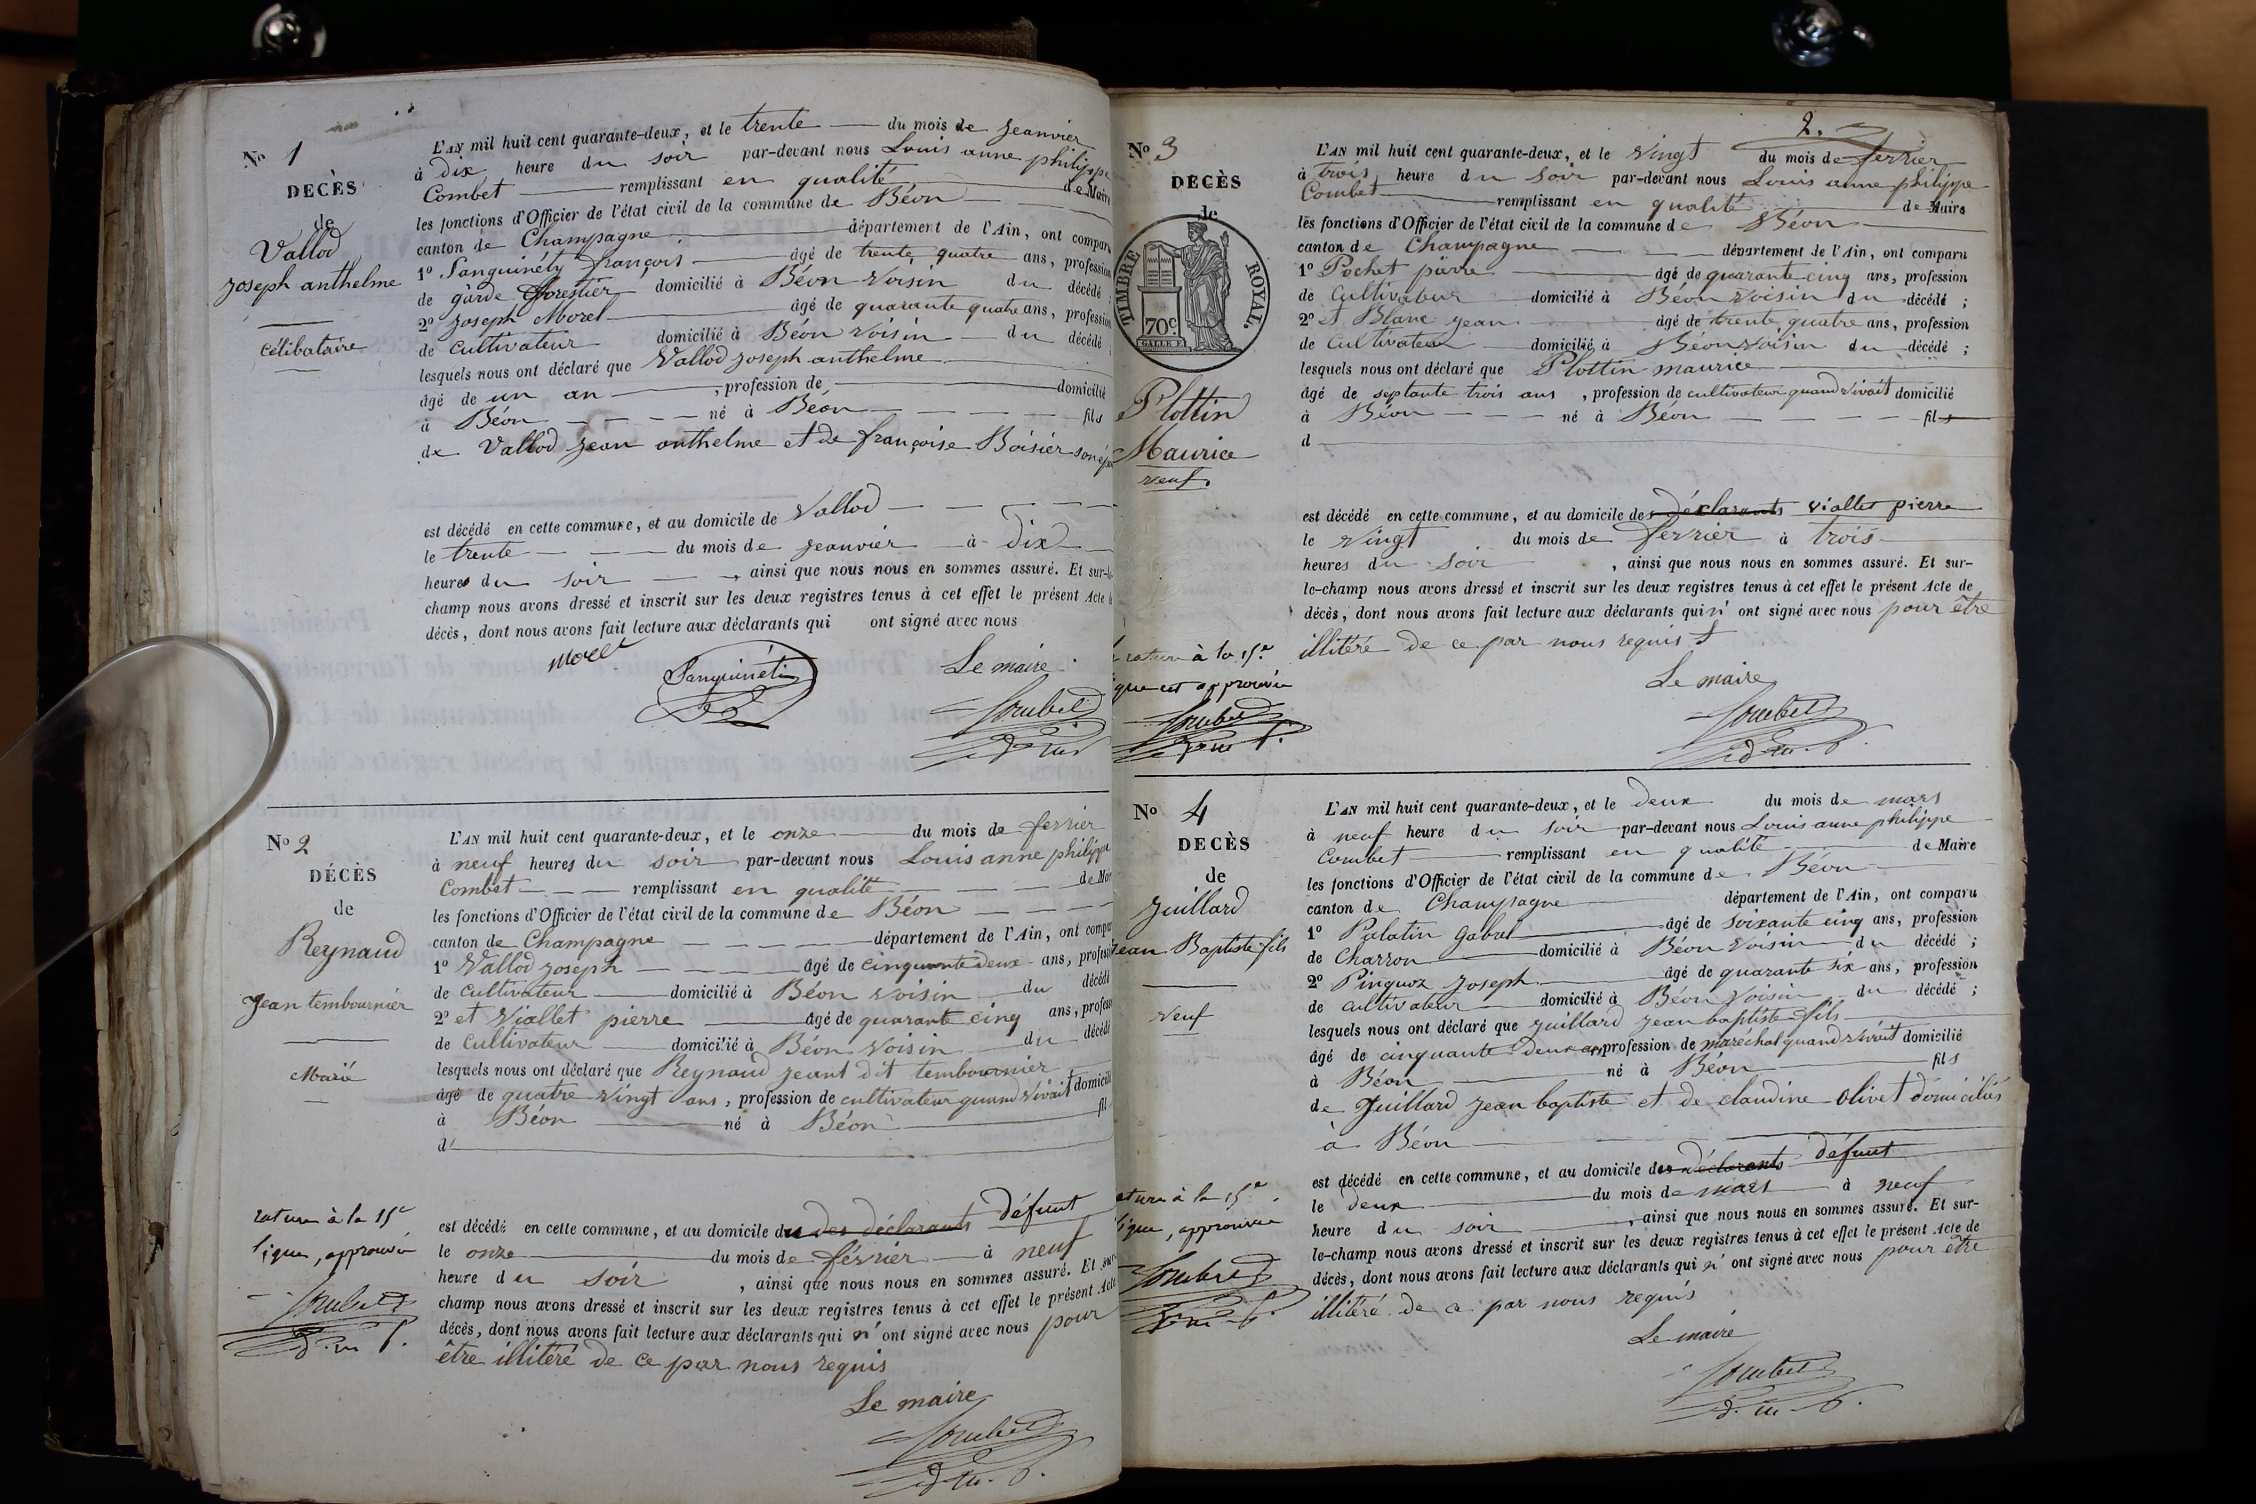 No 1
DECÈS
de
Vallod
joseph anthelme
célibataire
L'AN mil huit cent quarante-deux, et le trente du mois de jeanvier
à dix heure du soir par-devant nous Louis anne philippe
Combet remplissant en qualité de Maire
les fonctions d'Officier de l'état civil de la commune de Béon
canton de Champagne département de l'Ain, ont comparu
1º Sanguinéty françois âgé de trente quatre ans, profession
de garde forestier domicilié à Béon voisin du décédé ;
2º joseph Morel âgé de quarante quatre ans, profession
de cultivateur domicilié à Béon voisin du décédé ;
lesquels nous ont déclaré que Vallod joseph anthelme
âgé de un an , profession de domicilié
à Béon né à Béon fils
de Vallod jean anthelme et de françoise Boisier son
est décédé en cette commune, et au domicile de Vallod
le trente du mois de jeanvier à dix
heures du soir , ainsi que nous nous en sommes assuré. Et sur-le-
champ nous avons dressé et inscrit sur les deux registres tenus à cet effet le présent Acte
décès, dont nous avons fait lecture aux déclarants qui ont signé avec nous
Morel
Sanguinéti
Le maire
Combet
No 2
DÉCÈS
de
Reynaud
Jean tembournier
Marié
L'AN mil huit cent quarante-deux, et le onze du mois de fevrier
à neuf heures du soir par-devant nous Louis anne philippe
Combet remplissant en qualité de Mair
les fonctions d'Officier de l'état civil de la commune de Béon
canton de Champagne département de l'Ain, ont compar
1º Vallod joseph âgé de cinquante deux ans, profession
de cultivateur domicilié à Béon voisin du décédé
2º et Viallet pierre âgé de quarante cinq ans, profess
de cultivateur domicilié à Béon voisin du décédé
lesquels nous ont déclaré que Reynaud jeant dit tembournier
âgé de quatre vingt ans, profession de cultivateur quand vivait domicili
à Béon né à Béon fil
d'
rature à la 15e
ligne, approuvée
Combet
d. m. P.
est décédé en cette commune, et au domicile du des déclarants défunt
le onze du mois de février à neuf
heure du soir , ainsi que nous nous en sommes assuré. Et sur
champ nous avons dressé et inscrit sur les deux registres tenus à cet effet le présent Acte
décès, dont nous avons fait lecture aux déclarants qui n'ont signé avec nous pour
être illitéré de ce par nous requis
Le maire
Combet
d. m. P.
2.
No 3
DECÈS
de
TIMBRE ROYAL.
70c.
Plottin
Maurice
veuf.
L'AN mil huit cent quarante-deux, et le vingt du mois de fevrier
à trois heure du soir par-devant nous Louis anne philippe
Combet remplissant en qualité de Maire
les fonctions d'Officier de l'état civil de la commune de Béon
canton de Champagne département de l'Ain, ont comparu
1º Pochet pierre âgé de quarante cinq ans, profession
de cultivateur domicilié à Béon voisin du décédé ;
2º et Blanc jean âgé de trente quatre ans, profession
de cultivateur domicilié à Béon voisin du décédé ;
lesquels nous ont déclaré que Plottin maurice
âgé de septante trois ans , profession de cultivateur quand vivait domicilié
à Béon né à Béon fils
d
est décédé en cette commune, et au domicile des déclarants viallet pierre
le vingt du mois de fevrier à trois
heures du soir , ainsi que nous nous en sommes assuré. Et sur-
le-champ nous avons dressé et inscrit sur les deux registres tenus à cet effet le présent Acte de
décès, dont nous avons fait lecture aux déclarants qui n' ont signé avec nous pour être
illitéré de ce par nous requis
rature à la 15e
igne est approuvée
Combet
d. m. P.
Le maire
Combet
d. m. P.
No 4
DECÈS
de
juillard
jean Baptiste fils
veuf
L'AN mil huit cent quarante-deux, et le deux du mois de mars
à neuf heure du soir par-devant nous Louis anne philippe
Combet remplissant en qualité de Maire
les fonctions d'Officier de l'état civil de la commune de Béon
canton de Champagne département de l'Ain, ont comparu
1º Palatin Gabal âgé de soixante cinq ans, profession
de Charron domicilié à Béon voisin du décédé ;
2º Pinguoz Joseph âgé de quarante six ans, profession
de cultivateur domicilié à Béon voisin du décédé ;
lesquels nous ont déclaré que juillard jean baptiste fils
âgé de cinquante deux ans profession de marechal quand vivait domicilié
à Béon né à Béon fils
de Juillard jean baptiste et de claudine olivet domiciliés
à Béon
est décédé en cette commune, et au domicile des déclarants défunt
le deux du mois de mars à neuf
heure du soir , ainsi que nous nous en sommes assuré. Et sur-
le-champ nous avons dressé et inscrit sur les deux registres tenus à cet effet le présent Acte de
décès, dont nous avons fait lecture aux déclarants qui n' ont signé avec nous pour être
illitéré de ce par nous requis
ature à la 15e
igne, approuvée
Combet
d. m. P.
Le maire
Combet
d. m. P.